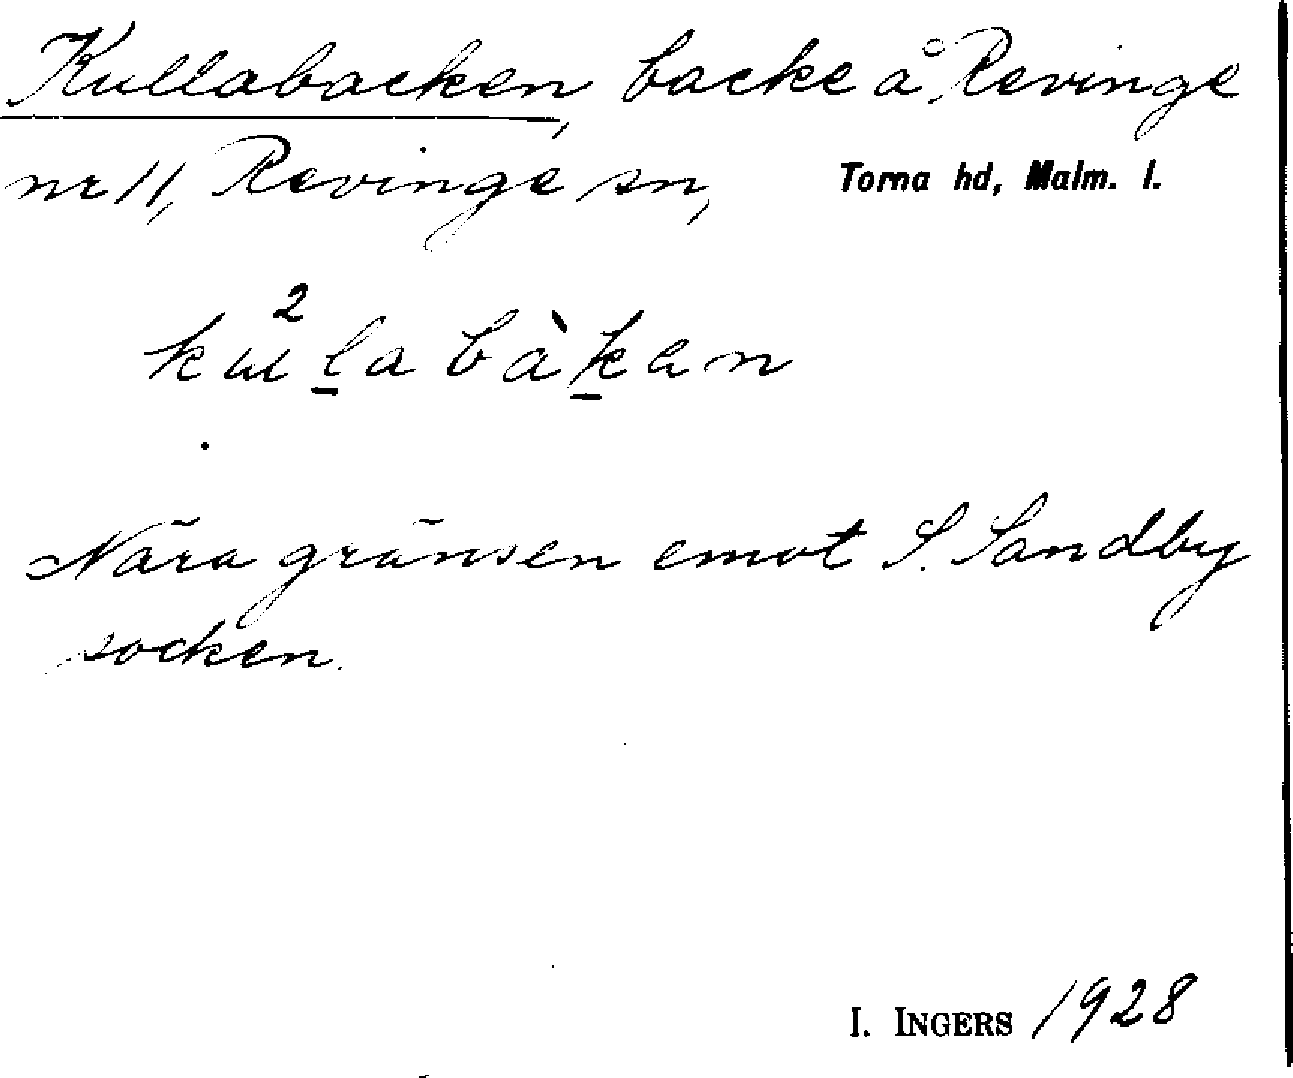 Kullabacken, backe å Revinge
nr 11, Revinge sn, Torna hd, Malm. l.
Nära gränsen emot S. Sandby
socken.
I. INGERS 1928